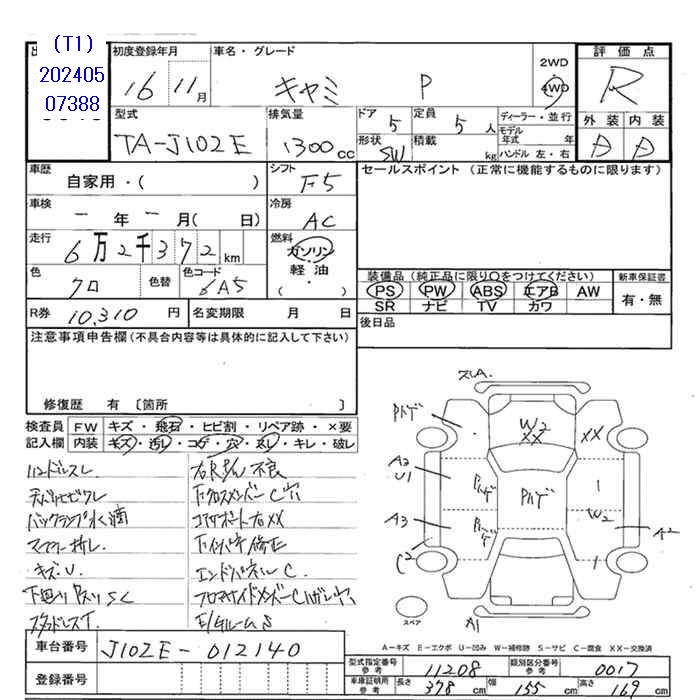 (T1)
202405
07388
初度登録年月
16 11月
車名・グレード
キャミ P
2WD
4WD
評価点
R
型式
TA-J102E
排気量
1300cc
ドア 5
定員 5人
形状 SW
積載 kg
ディーラー・並行
モデル年式 年
ハンドル 左・右
外装 内装
D D
車歴
自家用・( )
シフト
F5
セールスポイント (正常に機能するものに限ります)
車検
ー年ー月( 日)
冷房
AC
走行
6万2千372km
燃料
ガソリン
軽油
( ・ )
色
クロ
色替
色コード
6A5
装備品(純正品に限り○をつけてください)
PS PW ABS エアB AW
SR ナビ TV カワ
新車保証書
有・無
R券 10,310円
名変期限 月 日
後日品
注意事項申告欄(不具合内容等は具体的に記入して下さい)
修復歴 有 〔箇所 〕
検査員記入欄
FW キズ・飛石・ヒビ割・リペア跡・×要
内装 キズ・汚れ・コゲ・穴・スレ・キレ・破レ
バックランプ水滴
キズ・U.
下廻りサスリSC
スタッドレスT.
下クロスメンバーC穴
コアサポート右XX
エンドパネルC.
E/GルームS
ズレA.
Pハゲ
W2
XX
XX
A2
U1
Pハゲ
Pハゲ
W2
A3
Pハゲ
A2
C2
A1
スペア
A-キズ E-エクボ U-凹み W-補修跡 S-サビ C-腐食 XX-交換済
車台番号 J102E-012140
登録番号
型式指定番号 参考 11208
類別区分番号 参考 0017
車庫証明用 参考 長さ 378cm 幅 155cm 高さ 169cm